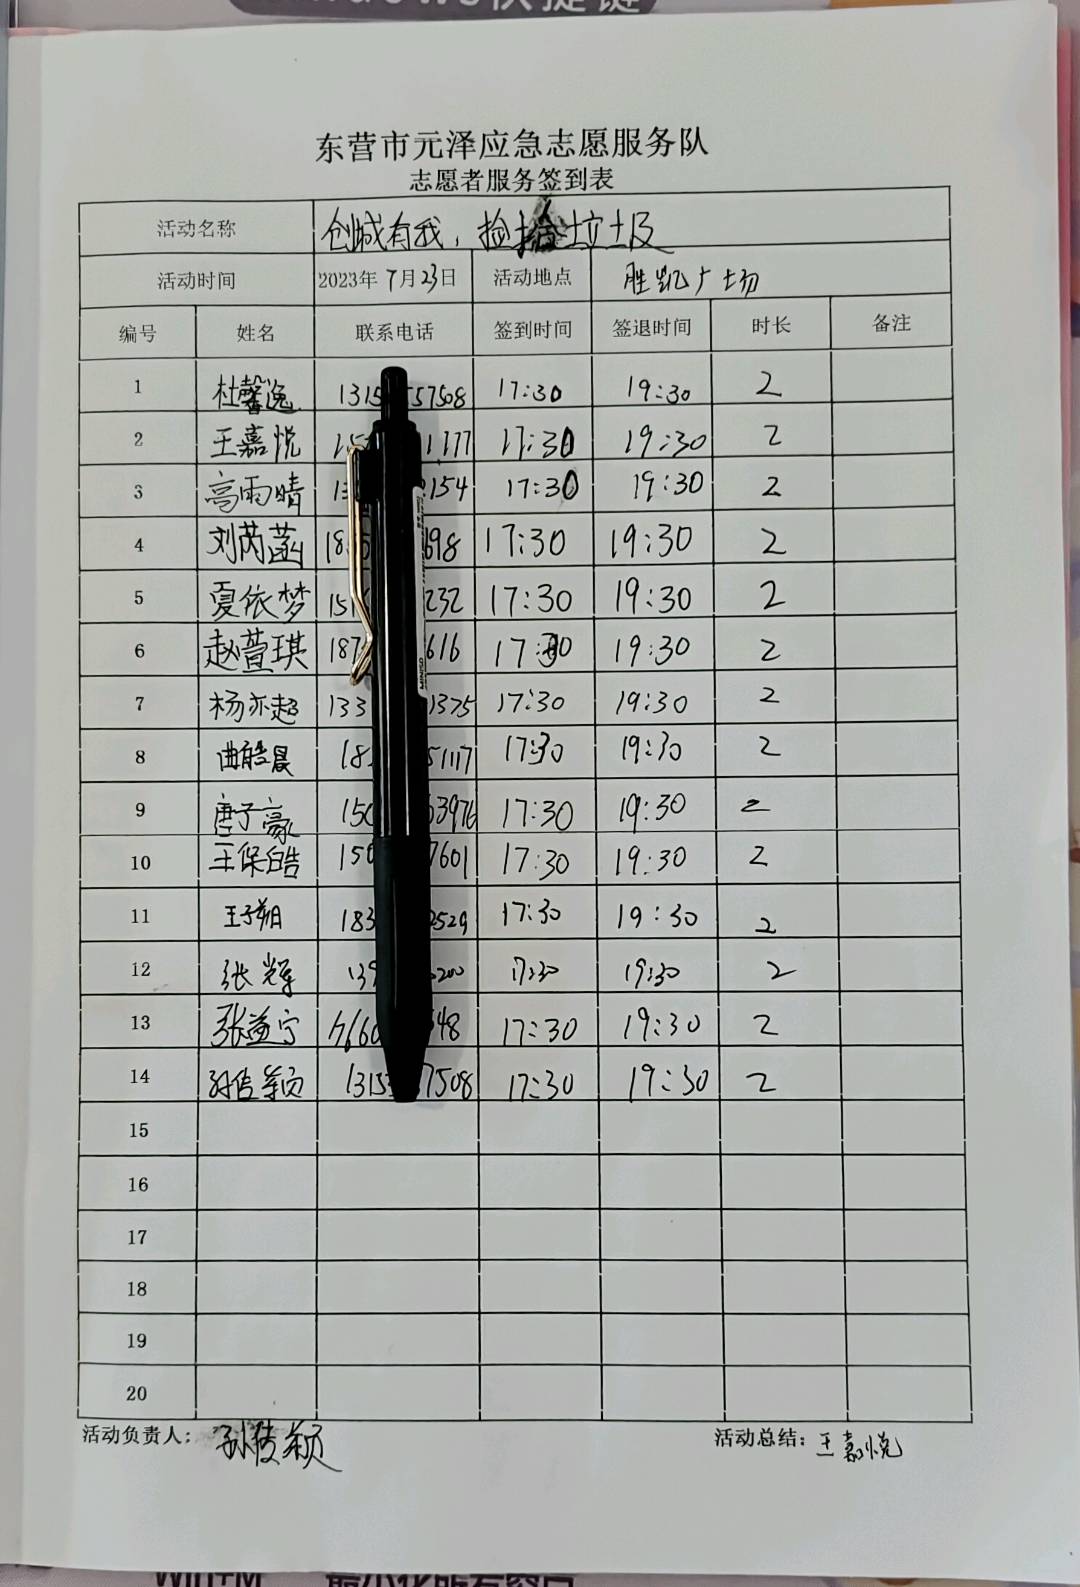 快捷键
东营市元泽应急志愿服务队
志愿者服务签到表
活动名称 创城有我，捡拾垃圾
活动时间 2023年7月23日 活动地点 胜凯广场
编号 姓名 联系电话 签到时间 签退时间 时长 备注
1 杜馨逸 1315 57508 17:30 19:30 2
2 王嘉悦 1777 17:30 19:30 2
3 高雨晴 13 154 17:30 19:30 2
4 刘芮菡 18 698 17:30 19:30 2
5 夏依梦 151 232 17:30 19:30 2
6 赵萱琪 187 616 17:30 19:30 2
7 杨亦超 133 1375 17:30 19:30 2
8 曲皓晨 18 51117 17:30 19:30 2
9 唐子豪 150 63976 17:30 19:30 2
10 王保皓 150 7601 17:30 19:30 2
11 王子朔 183 2529 17:30 19:30 2
12 张辉 139 200 17:30 19:30 2
13 张益宁 17660 548 17:30 19:30 2
14 孙倩颖 1315 7508 17:30 19:30 2
15
16
17
18
19
20
活动负责人： 孙倩颖 活动总结：王嘉悦
Win+M 最小化所有窗口